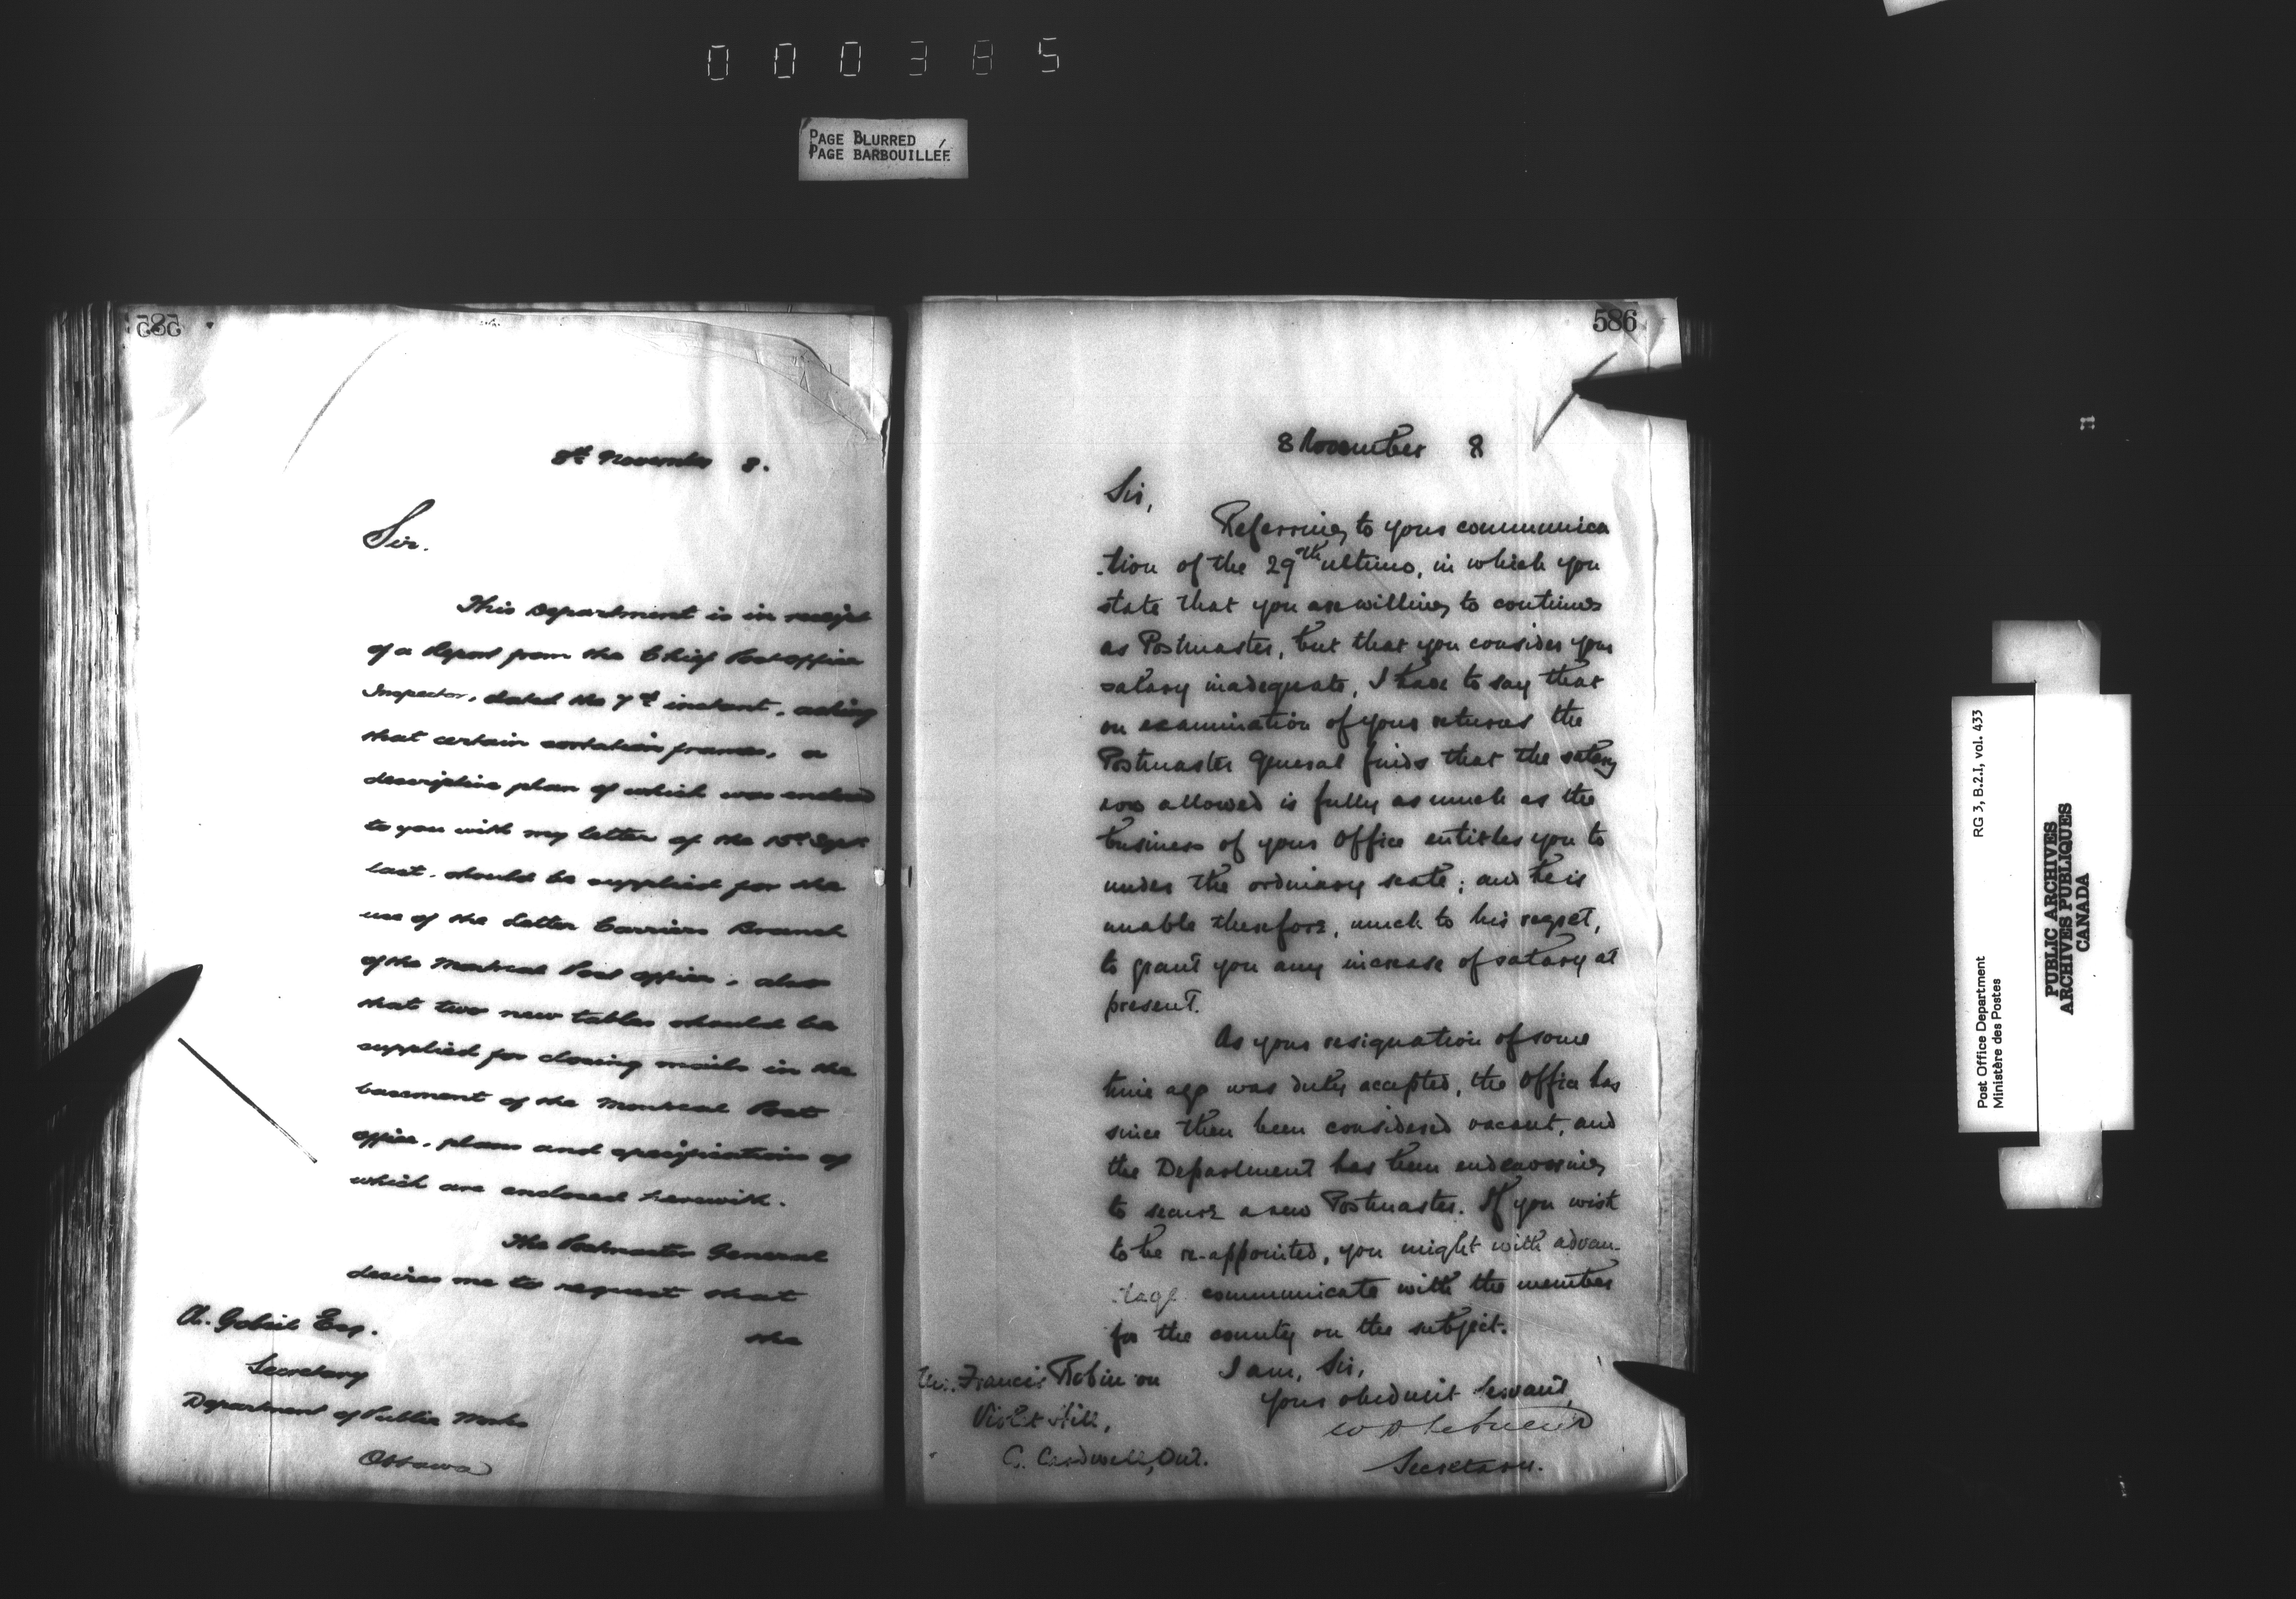 000385
PAGE BLURRED
PAGE BARBOUILLÉE
585
8th November 8.
Sir.
This Department is in receipt
of a report from the Chief Post office
Inspector, dated the 7th instant, asking
that certain sortation frames, a
descriptive plan of which was enclosed
to you with my letter of the Sept
last, should be supplied for the
use of the Letter Carriers Branch
of the Montreal Post office, also
that two new tables should be
supplied for closing mails in the
basement of the Montreal Post
office, plans and specifications of
which are enclosed herewith.
The Postmaster General
desires me to request that
the
A. Gobeil Esq.
Secretary
Department of Public Works
Ottawa
586
8 November 8
Sir,
Referring to your communica
-tion of the 29th ultimo, in which you
state that you are willing to continue
as Postmaster, but that you consider your
salary inadequate, I have to say that
on examination of your returns the
Postmaster General finds that the salary
now allowed is fully as much as the
business of your Office entitles you to
under the ordinary scale; and he is
unable therefore, much to his regret,
to grant you any increase of salary at
present.
As your resignation of some
time ago was duly accepted, the Office has
since then been considered vacant, and
the Department has been endeavoring
to secure a new Postmaster. If you wish
to be re-appointed, you might with advan-
tage communicate with the member
for the county on the subject.
I am, Sir,
Your obedient Servant,
Secretary.
Mr. Francis Robinson
Violet Hill,
C. Cardwell, Ont.
Post Office Department
Ministère des Postes
RG 3, B.2.I, vol. 433
PUBLIC ARCHIVES
ARCHIVES PUBLIQUES
CANADA